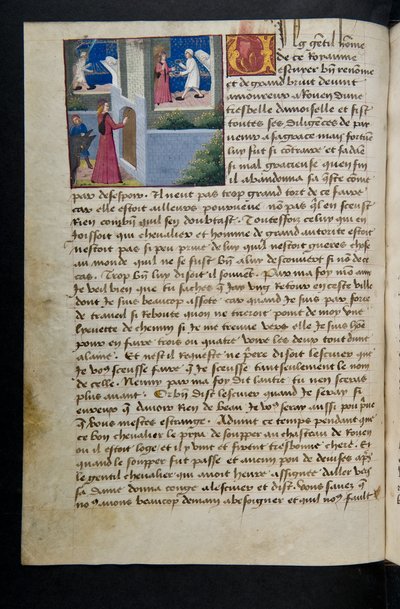 Ung gentil homme
de ce royaume
escuier bien renommé
et de grand bruit devint
amoureux a Rouen d'une
tresbelle damoiselle et fist
toutes ses diligences de par
venir a sa grace mais fortune
luy fut si contraire et sa dame
si mal gracieuse quen fin
il abandonna sa queste come
par desespoir. Il neut pas trop grand tort de ce faire
car elle estoit ailleurs pourveue non pas quil en sceust
Rien combien quil sen doubtast. Toutesfois celuy qui en
joissoit qui chevalier et homme de grand autorite estoit
nestoit pas si peu prive de luy quil nestoit gueres chose
au monde quil ne se fust bien a luy descouvert si non de ce
cas. Trop bien luy disoit il souvent. Par ma foy mon amy
Je veil bien que tu saches que Jay ung Retour en ceste ville
dont Je suis beaucop assote car quand Je suis par force
de traveil si reboute quon ne tireroit point de moy une
lieuette de chemin si Je me treuve vers elle Je suis home
pour en faire trois ou quatre voire les deux tout d'une
alaine. Et nest il requeste ne priere disoit lescuier que
Je vous sceusse faire que Je sceusse tant seulement le nom
de celle. Nenny par ma foy dit lautre tu nen sceras
plus avant. Or bien dist lescuier quand Je seray si
eureux que davoir Rien de beau Je vous seray aussi pou prive
que vous mestes estrange. Advint ce temps pendant que
ce bon chevalier le pria de soupper au chasteau de Rouen
ou il estoit loge et il y vint et firent tresbonne chere. Et
quand le soupper fut passe et aucun pou de devises apres
le gentil chevalier qui avoit heure assignee daller vers
sa dame donna conge a lescuier et dist. Vous savez que
nous avons beaucop demain a besoigner et quil nous fault